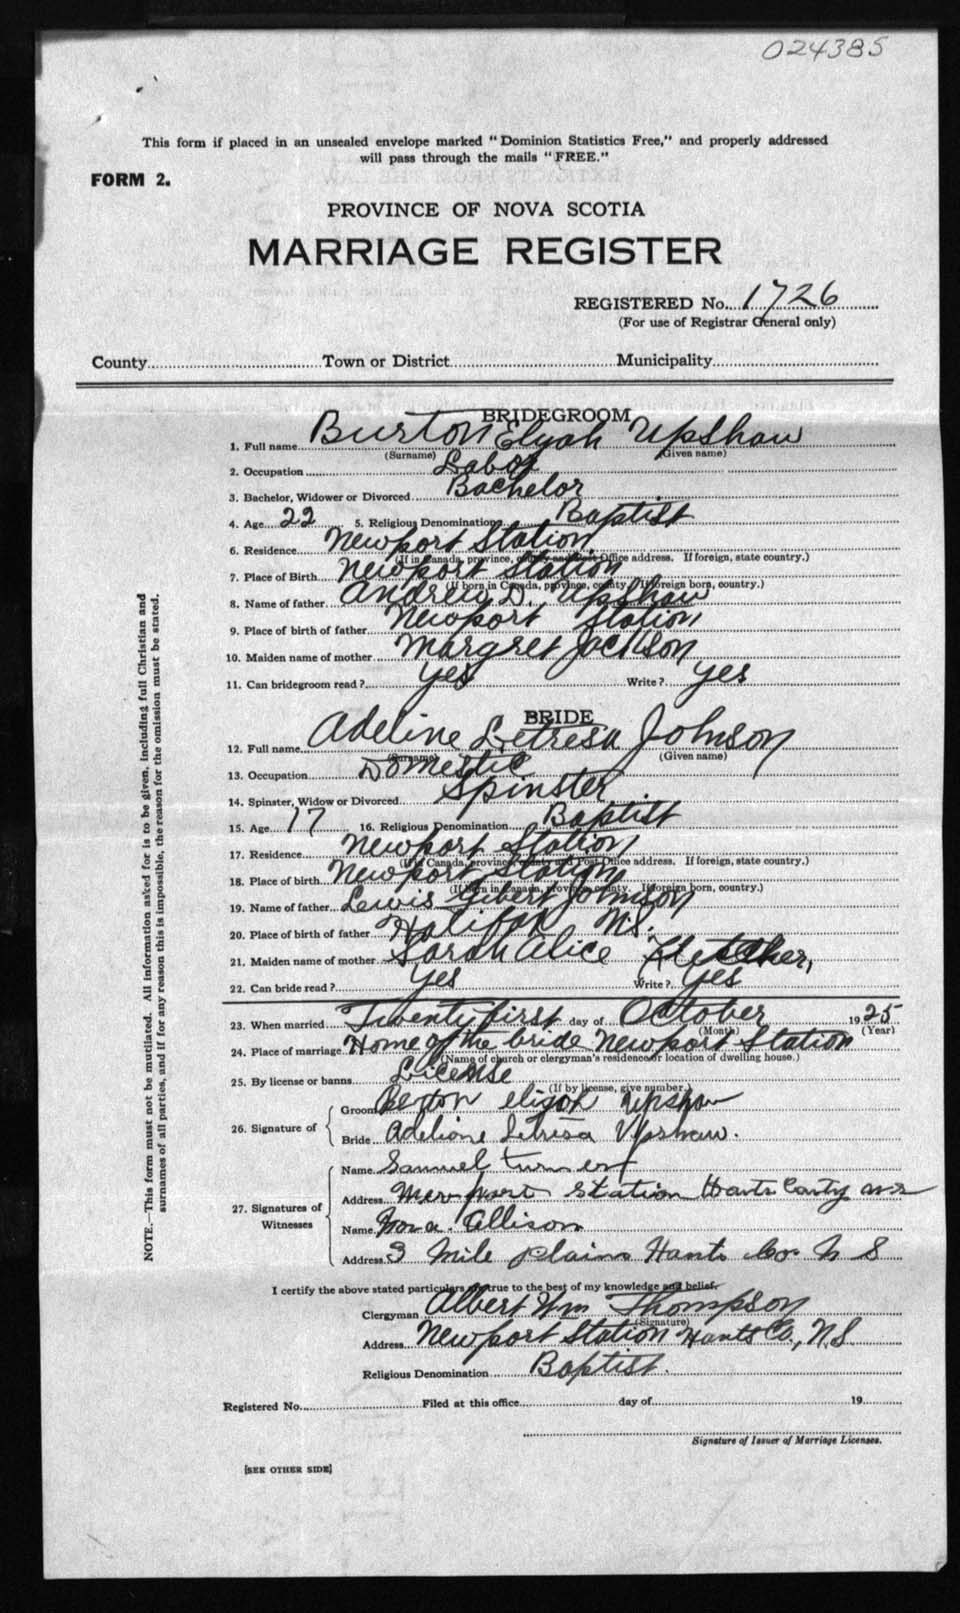 024385
This form if placed in an unsealed envelope marked "Dominion Statistics Free," and properly addressed
will pass through the mails "FREE."
FORM 2.
PROVINCE OF NOVA SCOTIA
MARRIAGE REGISTER
REGISTERED No. 1726
(For use of Registrar General only)
County Town or District Municipality
BRIDEGROOM
1. Full name Burton Elijah Upshaw
(Surname) (Given name)
2. Occupation Labor
3. Bachelor, Widower or Divorced Bachelor
4. Age 22 5. Religious Denomination Baptist
6. Residence Newport Station
(If in Canada, province, county and Post Office address. If foreign, state country.)
7. Place of Birth Newport Station
(If born in Canada, province, county. If foreign born, country.)
8. Name of father Andrew D. Upshaw
9. Place of birth of father Newport Station
10. Maiden name of mother Margret Jackson
11. Can bridegroom read? Yes Write? Yes
BRIDE
12. Full name Adeline Letresa Johnson
(Surname) (Given name)
13. Occupation Domestic
14. Spinster, Widow or Divorced Spinster
15. Age 17 16. Religious Denomination Baptist
17. Residence Newport Station
(If in Canada, province, county and Post Office address. If foreign, state country.)
18. Place of birth Newport Station
(If born in Canada, province, county. If foreign born, country.)
19. Name of father Lewis Gibert Johnson
20. Place of birth of father Halifax N.S.
21. Maiden name of mother Sarah Alice Fletcher,
22. Can bride read? Yes Write? Yes
23. When married Twenty first day of October 1925
(Month) (Year)
24. Place of marriage Home of the bride Newport Station
(Name of church or clergyman's residence or location of dwelling house.)
25. By license or banns License
(If by license, give number.)
26. Signature of
Groom Berton elijah Upshaw
Bride Adelione Letresa Upshaw.
27. Signatures of Witnesses
Name Samuel turner
Address Newport Station Hants Conty N S
Name Allison
Address 3 Mile plains Hants Co. N S
I certify the above stated particulars are true to the best of my knowledge and belief.
Clergyman Albert Wm Thompson
(Signature)
Address Newport Station Hants Co., N.S.
Religious Denomination Baptist.
Registered No. Filed at this office day of 19
Signature of Issuer of Marriage Licenses.
[SEE OTHER SIDE]
NOTE.—This form must not be mutilated. All information asked for is to be given, including full Christian and
surnames of all parties, and if for any reason this is impossible, the reason for the omission must be stated.